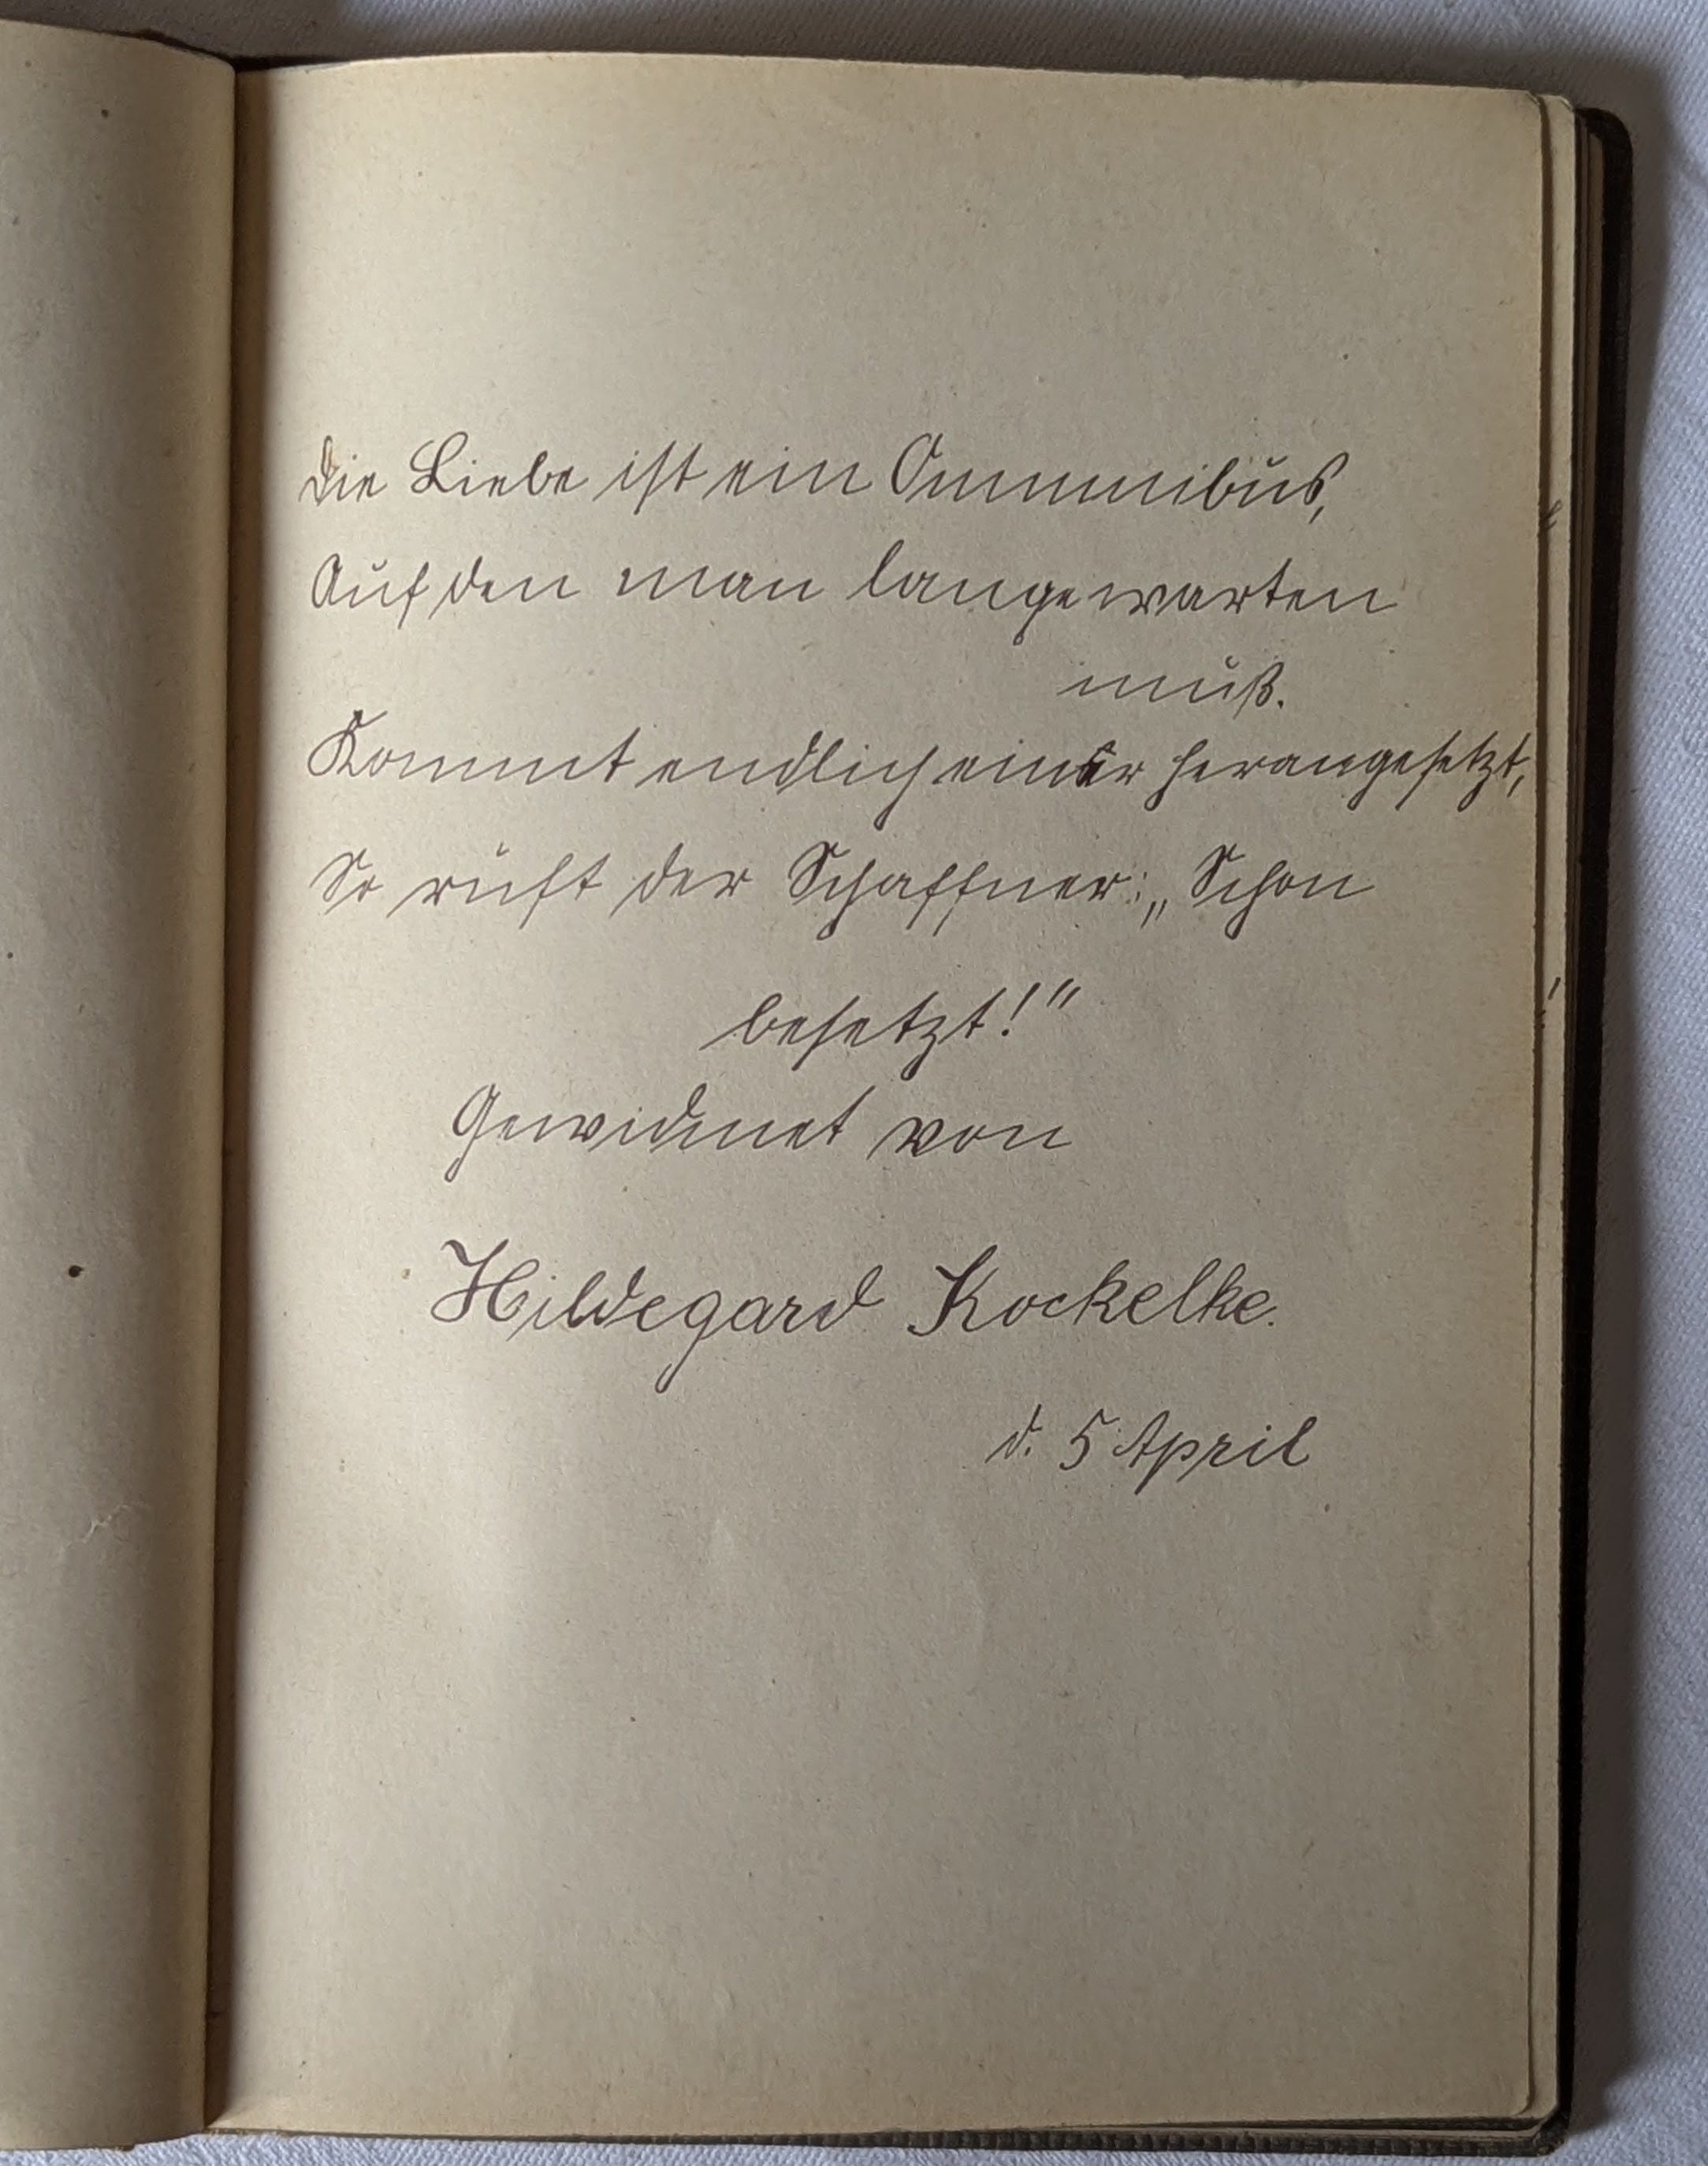 Die Liebe ist ein Ommnibus,
Auf den man lange warten
muß.
Kommt endlich einer herangesetzt,
So ruft der Schaffner: „Schon
besetzt!"
Gewidmet von
Hildegard Kockelke.
d. 5 April